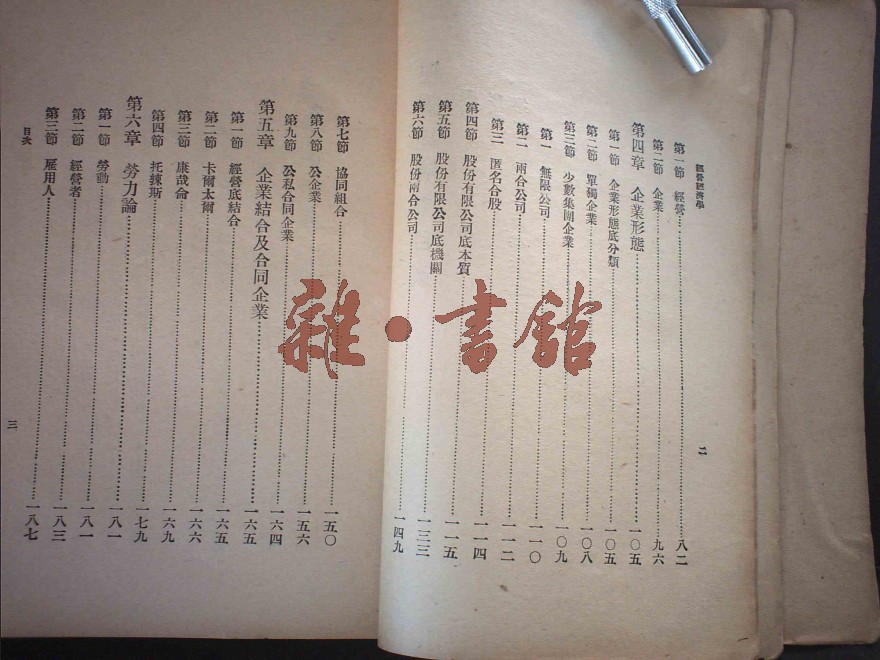 經營經濟學
二
第一節 經營 八二
第二節 企業 九六
第四章 企業形態 一〇五
第一節 企業形態底分類 一〇五
第二節 單獨企業 一〇八
第三節 少數集團企業 一〇九
第一 無限公司 一一〇
第二 兩合公司 一一二
第三 匿名合股 一一四
第四節 股份有限公司底本質 一一五
第五節 股份有限公司底機關 一三三
第六節 股份兩合公司 一四九
第七節 協同組合 一五〇
第八節 公企業 一五六
第九節 公私合同企業 一六四
第五章 企業結合及合同企業 一六五
第一節 經營底結合 一六五
第二節 卡爾太爾 一六六
第三節 康哉侖 一六九
第四節 托辣斯 一七九
第六章 勞力論 一八一
第一節 勞動 一八一
第二節 經營者 一八三
第三節 雇用人 一八七
目次
三
雜·書館